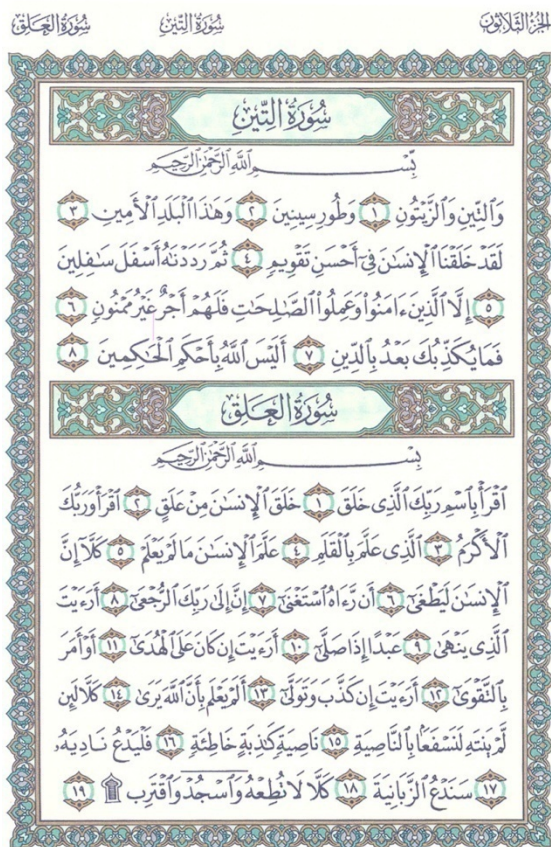 الجزء الثلاثون
سورة التين
سورة العلق
سُورَةُ التِّينِ
بِسْمِ ٱللَّهِ ٱلرَّحْمَٰنِ ٱلرَّحِيمِ
وَٱلتِّينِ وَٱلزَّيْتُونِ ١ وَطُورِ سِينِينَ ٢ وَهَٰذَا ٱلْبَلَدِ ٱلْأَمِينِ ٣
لَقَدْ خَلَقْنَا ٱلْإِنسَٰنَ فِىٓ أَحْسَنِ تَقْوِيمٍ ٤ ثُمَّ رَدَدْنَٰهُ أَسْفَلَ سَٰفِلِينَ
٥ إِلَّا ٱلَّذِينَ ءَامَنُوا۟ وَعَمِلُوا۟ ٱلصَّٰلِحَٰتِ فَلَهُمْ أَجْرٌ غَيْرُ مَمْنُونٍ ٦
فَمَا يُكَذِّبُكَ بَعْدُ بِٱلدِّينِ ٧ أَلَيْسَ ٱللَّهُ بِأَحْكَمِ ٱلْحَٰكِمِينَ ٨
سُورَةُ العَلَقِ
بِسْمِ ٱللَّهِ ٱلرَّحْمَٰنِ ٱلرَّحِيمِ
ٱقْرَأْ بِٱسْمِ رَبِّكَ ٱلَّذِى خَلَقَ ١ خَلَقَ ٱلْإِنسَٰنَ مِنْ عَلَقٍ ٢ ٱقْرَأْ وَرَبُّكَ
ٱلْأَكْرَمُ ٣ ٱلَّذِى عَلَّمَ بِٱلْقَلَمِ ٤ عَلَّمَ ٱلْإِنسَٰنَ مَا لَمْ يَعْلَمْ ٥ كَلَّآ إِنَّ
ٱلْإِنسَٰنَ لَيَطْغَىٰٓ ٦ أَن رَّءَاهُ ٱسْتَغْنَىٰٓ ٧ إِنَّ إِلَىٰ رَبِّكَ ٱلرُّجْعَىٰٓ ٨ أَرَءَيْتَ
ٱلَّذِى يَنْهَىٰ ٩ عَبْدًا إِذَا صَلَّىٰٓ ١٠ أَرَءَيْتَ إِن كَانَ عَلَى ٱلْهُدَىٰٓ ١١ أَوْ أَمَرَ
بِٱلتَّقْوَىٰٓ ١٢ أَرَءَيْتَ إِن كَذَّبَ وَتَوَلَّىٰٓ ١٣ أَلَمْ يَعْلَم بِأَنَّ ٱللَّهَ يَرَىٰ ١٤ كَلَّا لَئِن
لَّمْ يَنتَهِ لَنَسْفَعًۢا بِٱلنَّاصِيَةِ ١٥ نَاصِيَةٍ كَٰذِبَةٍ خَاطِئَةٍ ١٦ فَلْيَدْعُ نَادِيَهُۥ
١٧ سَنَدْعُ ٱلزَّبَانِيَةَ ١٨ كَلَّا لَا تُطِعْهُ وَٱسْجُدْ وَٱقْتَرِب ۩ ١٩